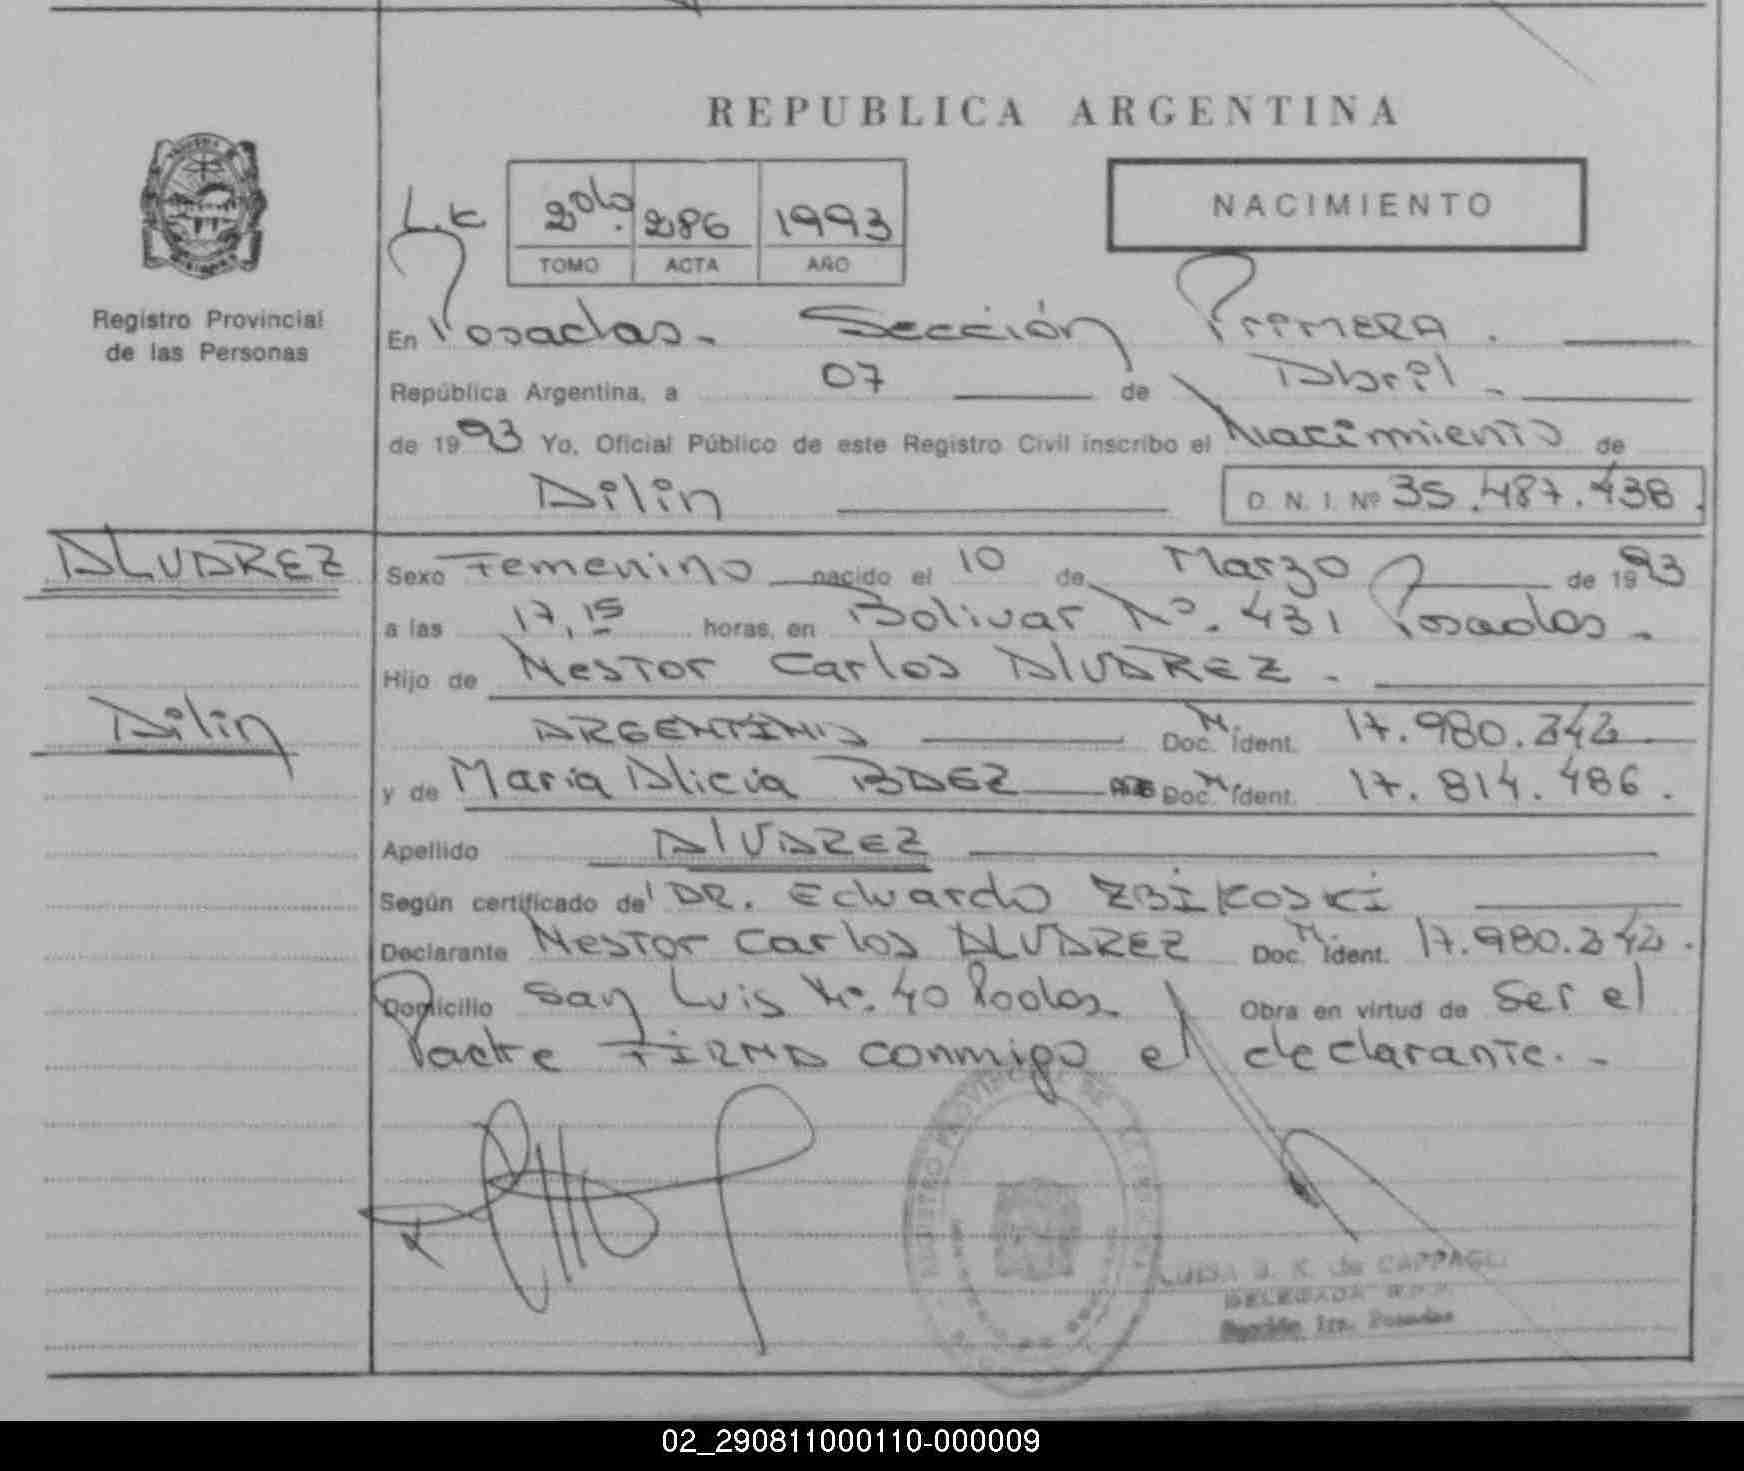 REPUBLICA ARGENTINA
NACIMIENTO
2do. 286 1993
TOMO ACTA AÑO
Registro Provincial
de las Personas
En Posadas. Sección PriMERA.
República Argentina, a 07 de Abril.
de 1993 Yo, Oficial Público de este Registro Civil inscribo el Nacimiento de
Ailin D. N. I. Nº 35.487.438.
ALVAREZ
Sexo Femenino nacido el 10 de Marzo de 1993
a las 17,15 horas, en Bolivar Nº. 431 Posadas.
Hijo de Nestor Carlos AlVAREZ.
Ailin
ARGENTINO Doc. M. Ident. 17.980.242
y de Maria Alicia BAEZ Doc. M. Ident. 17.814.486.
Apellido AlVAREZ
Según certificado del DR. Eduardo ZBiKosKi
Declarante Nestor Carlos ALVAREZ Doc. M. Ident. 17.980.242.
Domicilio San Luis Nº. 40 Podas. Obra en virtud de Ser el
Padre FiRMA conmigo el declarante.-
REGISTRO PROVINCIAL DE
LUISA de CAPPAGLI
DELEGADA R.P.P.
Sección 1ra. Posadas
02_290811000110-000009